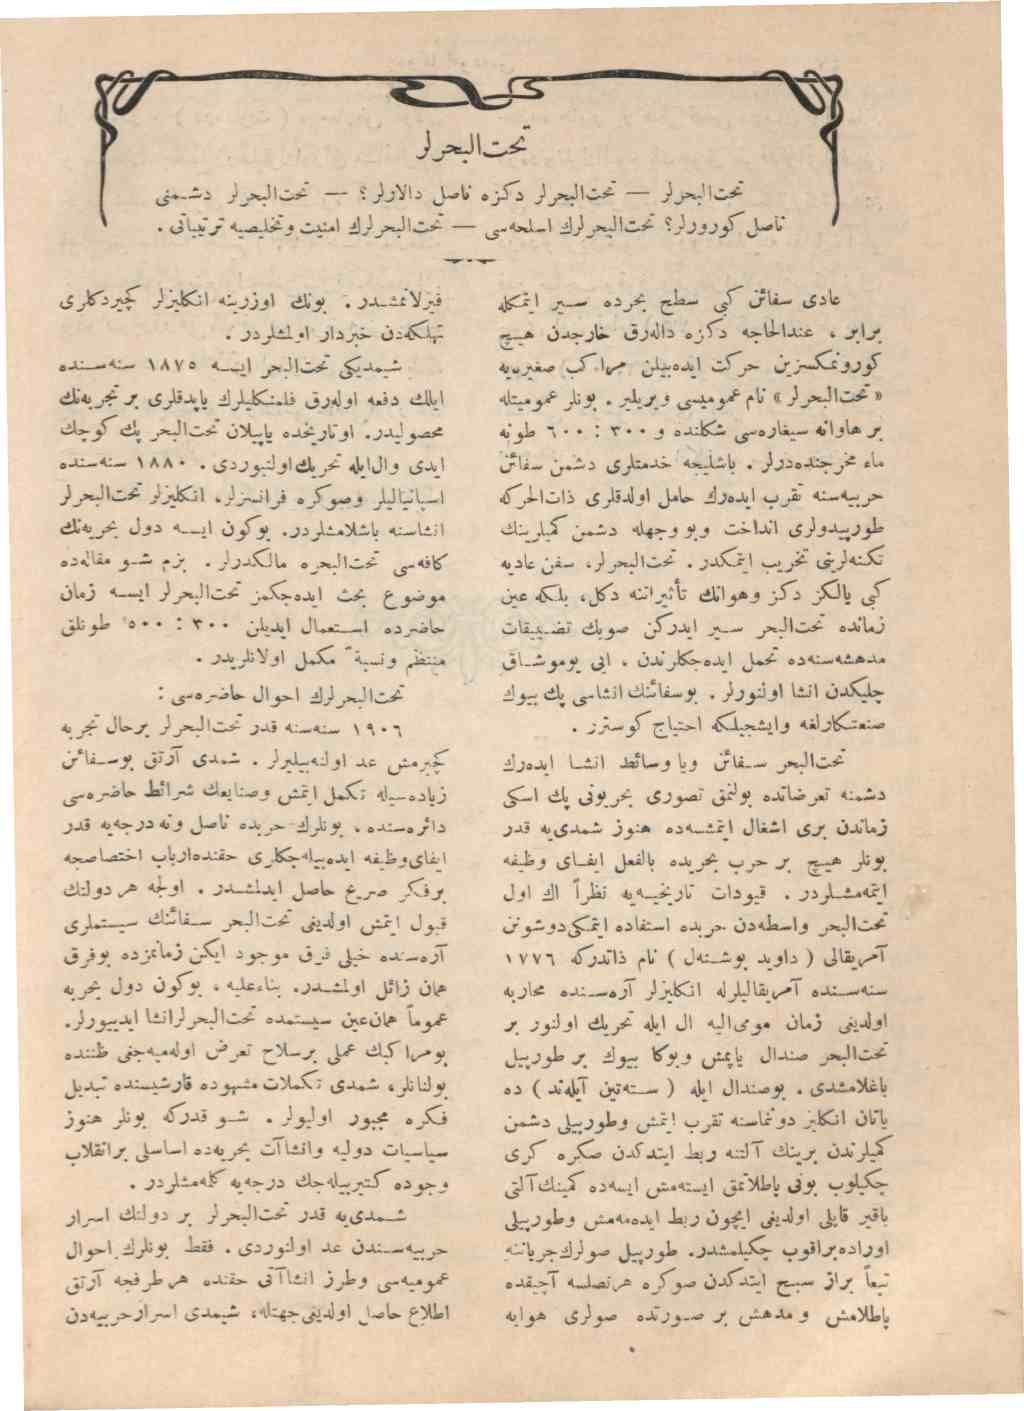 تحت‌البحرلر
تحت‌البحرلر — تحت‌البحرلر دكزه ناصل دالارلر؟ — تحت‌البحرلر دشمنی
ناصل كورورلر؟ تحت‌البحرلرك اسلحه‌سی — تحت‌البحرلرك امنیت وتخلیصیه ترتیباتی .
عادی سفائن كبی سطح بحرده سیر ایتمكله
برابر ، عندالحاجه دكزه داله‌رق خارجدن هیچ
كورونمكسزین حركت ایده‌بیلن مراكب صغیره‌یه
« تحت‌البحرلر » نام عمومیسی ویریلیر . بونلر عمومیتله
بر هاوانه سیغاره‌سی شكلنده و ٣٠٠ : ٦٠٠ طونه
ماء مخرجنده‌درلر . باشلیجه خدمتلری دشمن سفائن
حربیه‌سنه تقرب ایده‌رك حامل اولدقلری ذات‌الحركه
طورپیدولری انداخت وبو وجهله دشمن كمیلرینك
تكنه‌لرینی تخریب ایتمكدر . تحت‌البحرلر، سفن عادیه
كبی یالكز دكز وهوانك تأثیراتنه دكل، بلكه عین
زمانده تحت‌البحر سیر ایدركن صویك تضییقات
مدهشه‌سنه‌ده تحمل ایده‌جكلرندن ، ایی یوموشاق
چلیكدن انشا اولنورلر . بوسفائنك انشاسی پك بیوك
صنعتكارلغه وایشجیلكه احتیاج كوسترر .
تحت‌البحر سفائن ویا وسائط انشا ایده‌رك
دشمنه تعرضاتده بولنمق تصوری بحریونی پك اسكی
زماندن بری اشغال ایتمشسه‌ده هنوز شمدی‌یه قدر
بونلر هیچ بر حرب بحریده بالفعل ایفای وظیفه
ایتمه‌مشلردر . قیودات تاریخیه‌یه نظراً اك اول
تحت‌البحر واسطه‌دن حربده استفاده ایتمكی‌دوشونن
آمریقالی ( داوید بوشنه‌ل ) نام ذاتدركه ١٧٧٦
سنه‌سنده آمریقالیلرله انكلیزلر آره‌سنده محاربه
اولدیغی زمان مومی‌الیه ال ایله تحریك اولنور بر
تحت‌البحر صندال یاپمش وبوكا بیوك بر طورپیل
باغلامشدی . بوصندال ایله ( سته‌تین آیله‌ند ) ده
یاتان انكلیز دونماسنه تقرب ایتمش وطورپیلی دشمن
كمیلرندن برینك آلتنه ربط ایتدكدن صكره كری
چكیلوب بونی پاطلاتمق ایسته‌مش ایسه‌ده كمینك آلتی
باقیر قاپلی اولدیغی ایچون ربط ایده‌مه‌مش وطورپیلی
اوراده‌براقوب چكیلمشدر. طورپیل صولرك‌جریاننه
تبعاً براز سبح ایتدكدن صوكره هرنصلسه آچیقده
پاطلامش ومدهش بر صورتده صولری هوایه
فیرلاتمشدر . بونك اوزرینه انكلیزلر كچیردكلری
تهلكه‌دن خبردار اولمشلردر .
شیمدیكی تحت‌البحر ایسه ١٨٧٥ سنه‌سنده
ایلك دفعه اوله‌رق فلمنكلیلرك یاپدقلری بر تجربه‌نك
محصولیدر. اوتاریخده یاپیلان تحت‌البحر پك كوچك
ایدی وال‌ایله تحریك‌اولنیوردی . ١٨٨٠ سنه‌سنده
اسپانیالیلر وصوكره فرانسزلر، انكلیزلر تحت‌البحرلر
انشاسنه باشلامشلردر. بوكون ایسه دول بحریه‌نك
كافه‌سی تحت‌البحره مالكدرلر . بزم شو مقاله‌ده
موضوع بحث ایده‌جكمز تحت‌البحرلر ایسه زمان
حاضرده استعمال ایدیلن ٣٠٠ : ٥٠٠ طونلق
منتظم ونسبةً مكمل اولانلریدر .
تحت‌البحرلرك احوال حاضره‌سی :
١٩٠٦ سنه‌سنه قدر تحت‌البحرلر برحال تجربه
كچیرمش عد اولنه‌بیلیرلر . شمدی آرتق بوسفائن
زیاده‌سیله تكمل ایتمش وصنایعك شرائط حاضره‌سی
دائره‌سنده ، بونلرك حربده ناصل ونه درجه‌یه قدر
ایفای‌وظیفه ایده‌بیله‌جكلری حقنده‌ارباب اختصاصجه
برفكر صریح حاصل ایدلمشدر . اولجه هر دولتك
قبول ایتمش اولدیغی تحت‌البحر سفائنك سیستملری
آره‌سنده خیلی فرق موجود ایكن زمانمزده بوفرق
همان زائل اولمشدر. بناءعلیه ، بوكون دول بحریه
عموماً همان‌عین سیستمده تحت‌البحرلرانشا ایدییورلر.
بومراكبك عملی برسلاح تعرض اوله‌میه‌جغی ظننده
بولنانلر، شمدی تكملات مشهوده قارشیسنده تبدیل
فكره مجبور اولیولر . شو قدركه بونلر هنوز
سیاسیات دولیه وانشاآت بحریه‌ده اساسلی برانقلاب
وجوده كتیربیله‌جك درجه‌یه كلمه‌مشلردر .
شمدی‌یه قدر تحت‌البحرلر بر دولتك اسرار
حربیه‌سندن عد اولنوردی . فقط بونلرك احوال
عمومیه‌سی وطرز انشاآتی حقنده هرطرفجه آرتق
اطلاع حاصل اولدیغی‌جهتله، شیمدی اسرارحربیه‌دن